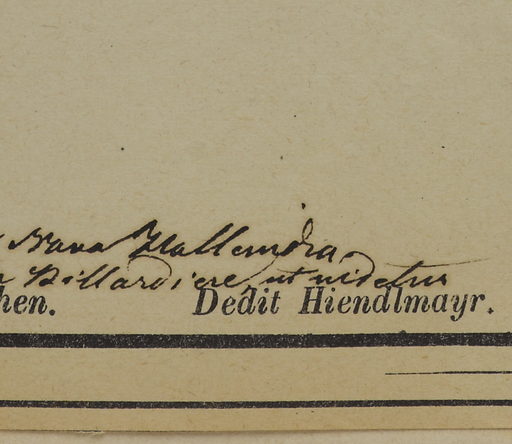 Nova Hollandia
Billardiere, ut videtur
hen. Dedit Hiendlmayr.